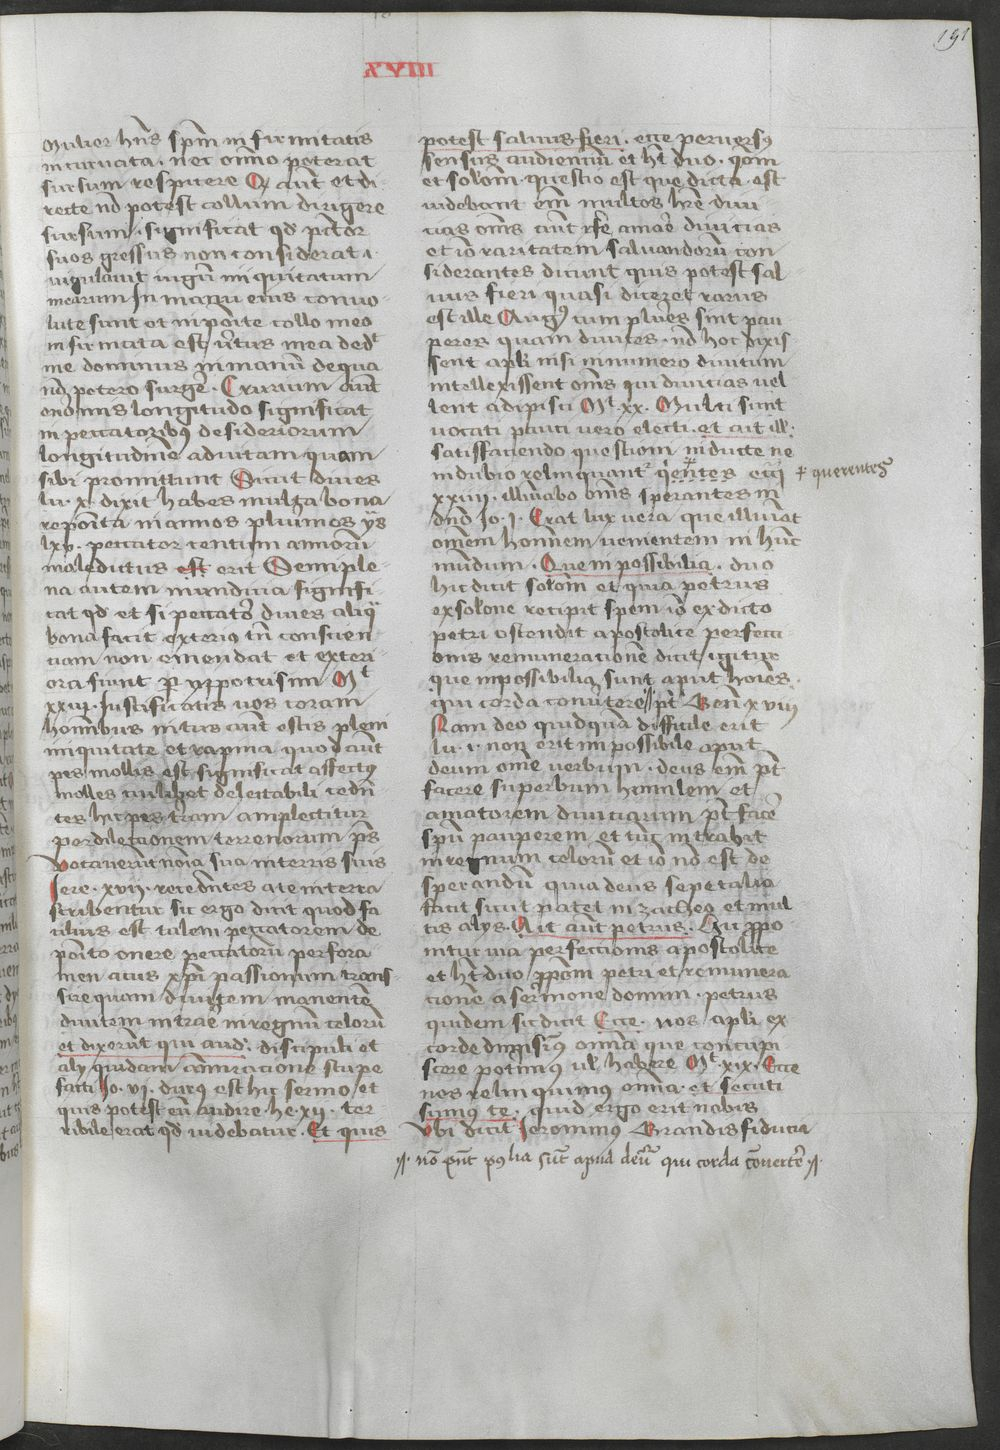 191
XVIII
Mulier hñs spm̄ infirmitatis
incuruata . nec om̄o poterat
sursum respicere Q aūt et di-
recte nō potest collum dirigere
sursum . significat qd pctor
suos gressus non considerat
uigilauit iugū iniquitatum
mearum In manu eius conuo-
lute sunt et inpoīte collo meo
infirmata est ūrtus mea dedᵗ
me dominus in manū de qua
nō potero surgēr . Crurium aūt
enormis longitudo significat
in peccatoribꝰ desideriorum
longitudinē ad uitam quam
sibi promittunt Dicit diues
lu . x . dixit habes multa bona
reposita in annos plurimos ys
lxv . peccator centum annorū
maledictus est erit Semiple-
na autem mundicia signifi-
cat qd et si peccator diues aliqͣ
bona facit exterius tn̄ conscien-
ciam non emendat et exteri-
ora fiunt ypocrisim Mᵗ
xxiii . Iustificatis uos coram
hominibus intus aūt estis pleni
iniquitate et rapina quod aūt
pes mollis est significat affectus
molles cuilibet delectabili cedn̄-
tes hic pes terram amplectitur
per dilectionem terrenorum ps
Vocauerūt noīa sua in terris suis
Iere . xvii . recedentes a te in terra
scribentur sic ergo dicit quod fa-
cilius est talem peccatorem de-
posito onere peccatorū per fora-
men acus xp̄i passionum trans-
sire quam diuitem manentē
diuitem intrare in regnū celorū
et dixerūt qui aud . discipuli et
alij quidam ammiracione stupe-
facti Jo . vj . durꝰ est hic sermo et
quis potest eū audire . he . xij . ter-
ribile erat qd uidebatur . Et quis
potest saluus fieri . ecce peruersꝰ
sensus audienciū et hīc duo . qōm
et solōm . questio est que dicta est
uidebant em̄ multos hrē diui-
cias om̄s aūt fere amare diuicias
et iō raritatem saluandorū con-
siderantes dicunt quis potest sal-
uus fieri quasi diceret rarus
est ille Augꝰ cum plures sint pau-
peres quam diuites . nō hoc dixis-
sent apli nisi in numero diuitum
intellexissent om̄s qui diuicias uel-
lent adipisci Mᵗ . xx . Multi sunt
uocati pauci vero electi . et ait ill .
satisfaciendo questioni inducte ne
in dubio relinquantʳ q̄rentes
querentes
xxiiii . illuminabo om̄s sperantes in
dn̄o Jo . j . Erat lux vera que illuminat
omnem hominem uenientem in hūc
mundum . Que inpossibilia . duo
hic dicit solōm et quia petrus
ex solone recipit spem iō ex dicto
petri ostendit apostolice perfecti-
onis remuneracionē dicit igitur
que inpossibilia sunt aput hoīes .
qui corda conuertere pt̄ Gen̄ . xviii
Nam deo quidquā difficile erit
lu . i . non erit impossibile aput
deum om̄e verbum . deus em̄ pt̄
facere superbum humilem et
amatorem diuiciarum pt̄ facē
spū pauperem et tūc intrabit
in regnum celorū et iō nō est de-
sperandū quia deus sepe talia
facit sicut patet in zacheo et mul-
tis alijs . Ait aūt petrus . Hic ppo-
nitur via perfectionis apostolice
et hīc duo pposm̄ petri et remunera-
cionē a sermone domini . petrus
quidem sic dicit Ecce . nos apli ex
corde dimisimꝰ omnia que concupi-
scere potuimus ul habere Mᵗ . xix . Ecce
nos relinquimus omnia . et secuti
sumus te . quid ergo erit nobis
Vbi dicit Ieronimus Grandis fiducia
nō sūt possibilia sūt apud deū qui corda cōuerterē